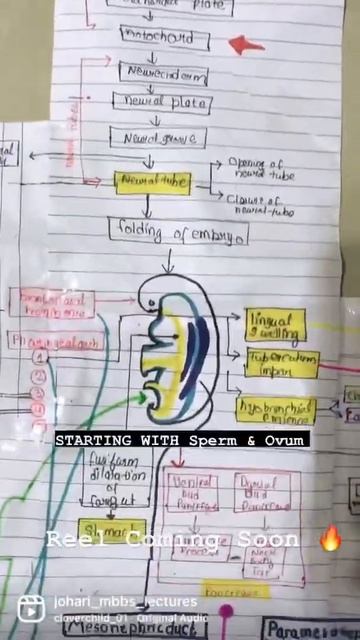 plate
Notochord
Neurectoderm
Neural plate
Neural groove
Neural tube
Opening of
neural tube
Closure of
neural tube
folding of embryo
Pharyngeal arch
1
2
3
4
lingual
swelling
Tuberculum
impar
hypobranchial
eminence
STARTING WITH Sperm & Ovum
fusiform
dilatation
of
foregut
Stomach
Ventral
bud
Pancreas
Dorsal
bud
Pancreas
Reel Coming Soon 🔥
Pancreas
johari_mbbs_lectures
cloverchild_01 · Original Audio
Mesonephric duct